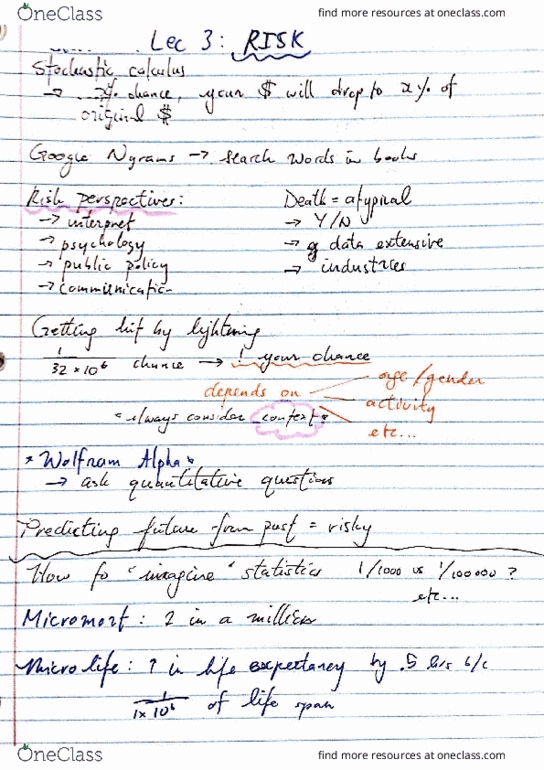 OneClass
find more resources at oneclass.com
Lec 3: RISK
Stochastic calculus
→ ..?% chance, your $ will drop to x% of
original $
Google Ngrams → search words in books
Risk perspectives:
→ interpret
→ psychology
→ public policy
→ communicatio-
Death = atypical
→ Y/N
→ data extensive
→ industries
Getting hit by lightning
1/32×10⁶ chance → ! your chance
depends on
age/gender
activity
etc...
"always consider context"
* Wolfram Alpha
→ ask quantitative question
Predicting future from past = risky
How to "imagine" statistics 1/1000 vs 1/100000 ?
etc...
Micromort: in a million
Microlife: in life expectancy by .5 hrs b/c
1/1×10⁶ of life span
OneClass
find more resources at oneclass.com